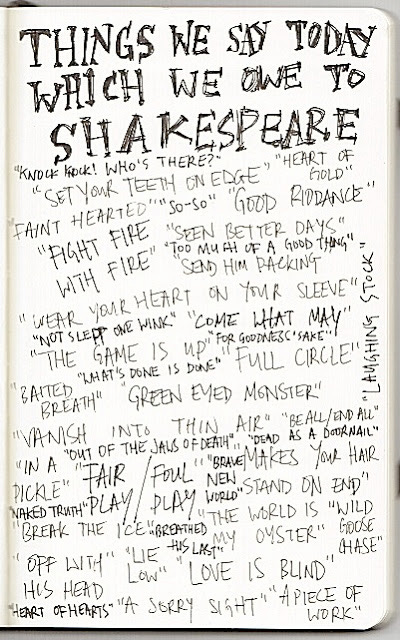 THINGS WE SAY TODAY
WHICH WE OWE TO
SHAKESPEARE
"KNOCK KNOCK! WHO'S THERE?" "HEART OF GOLD"
"SET YOUR TEETH ON EDGE"
"FAINT HEARTED" "SO-SO" "GOOD RIDDANCE"
"FIGHT FIRE WITH FIRE" "SEEN BETTER DAYS"
"TOO MUCH OF A GOOD THING"
"SEND HIM PACKING"
"WEAR YOUR HEART ON YOUR SLEEVE"
"LAUGHING STOCK"
"NOT SLEPT ONE WINK" "COME WHAT MAY"
"THE GAME IS UP" "FOR GOODNESS' SAKE"
"WHAT'S DONE IS DONE" "FULL CIRCLE"
"BAITED BREATH" "GREEN EYED MONSTER"
"VANISH INTO THIN AIR" "BE ALL/END ALL"
"OUT OF THE JAWS OF DEATH" "DEAD AS A DOORNAIL"
"IN A PICKLE" "FAIR PLAY / FOUL PLAY" "BRAVE NEW WORLD" "MAKES YOUR HAIR STAND ON END"
"NAKED TRUTH" "THE WORLD IS MY OYSTER" "WILD GOOSE CHASE"
"BREAK THE ICE" "BREATHED HIS LAST"
"OFF WITH HIS HEAD" "LIE LOW" "LOVE IS BLIND"
"HEART OF HEARTS" "A SORRY SIGHT" "A PIECE OF WORK"